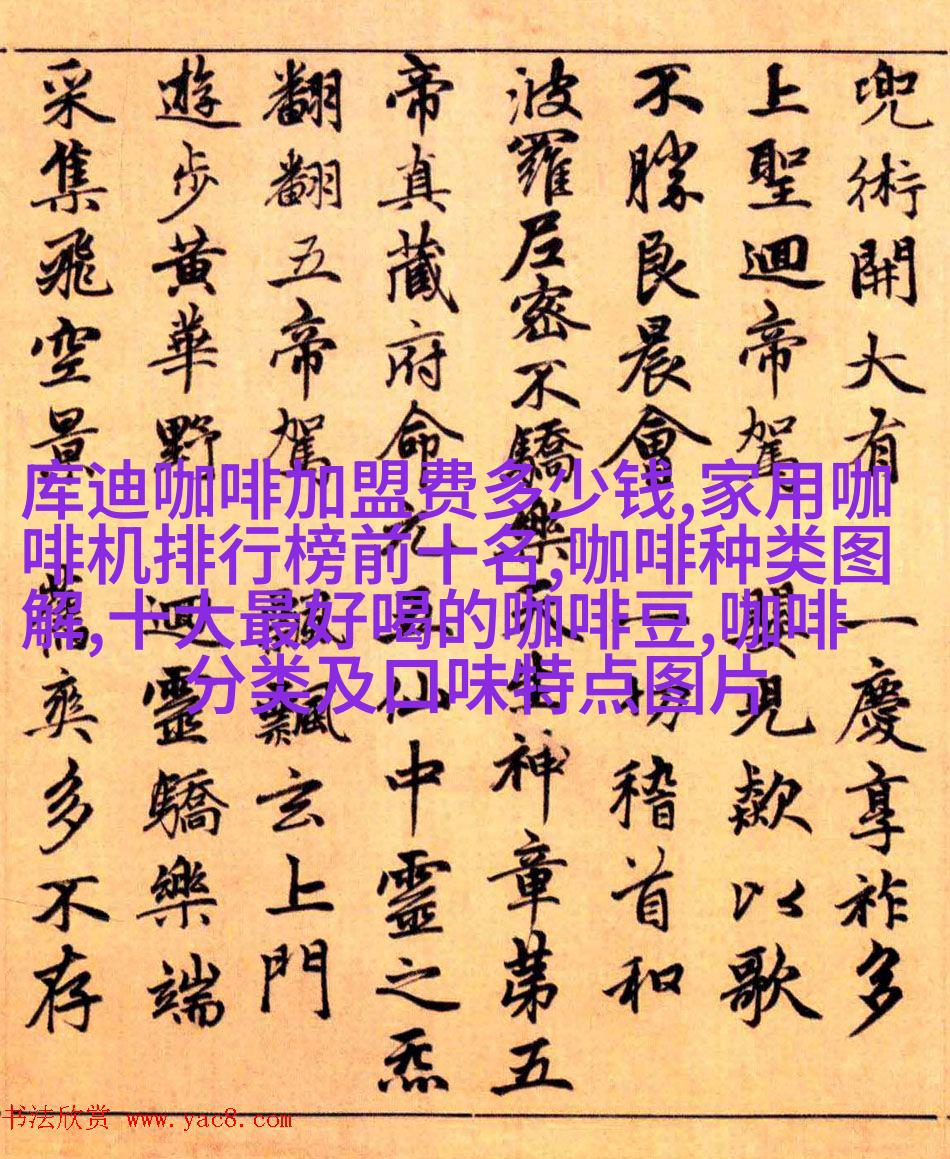 兜術開大有 一慶享祚多
上聖迴帝駕 現歎以歌
不勝良晨會 一切稽首和
波羅尼密不驕樂天生神章第五
帝真藏府命元 仙中靈之炁
翻翻五帝駕 飄飄玄上門
遊步黃華野 迴靈驕樂端
采集飛空景 爽多不存
库迪咖啡加盟费多少钱,家用咖
啡机排行榜前十名,咖啡种类图
解,十大最好喝的咖啡豆,咖啡
分类及口味特点图片
书法欣赏 www.yac8.com